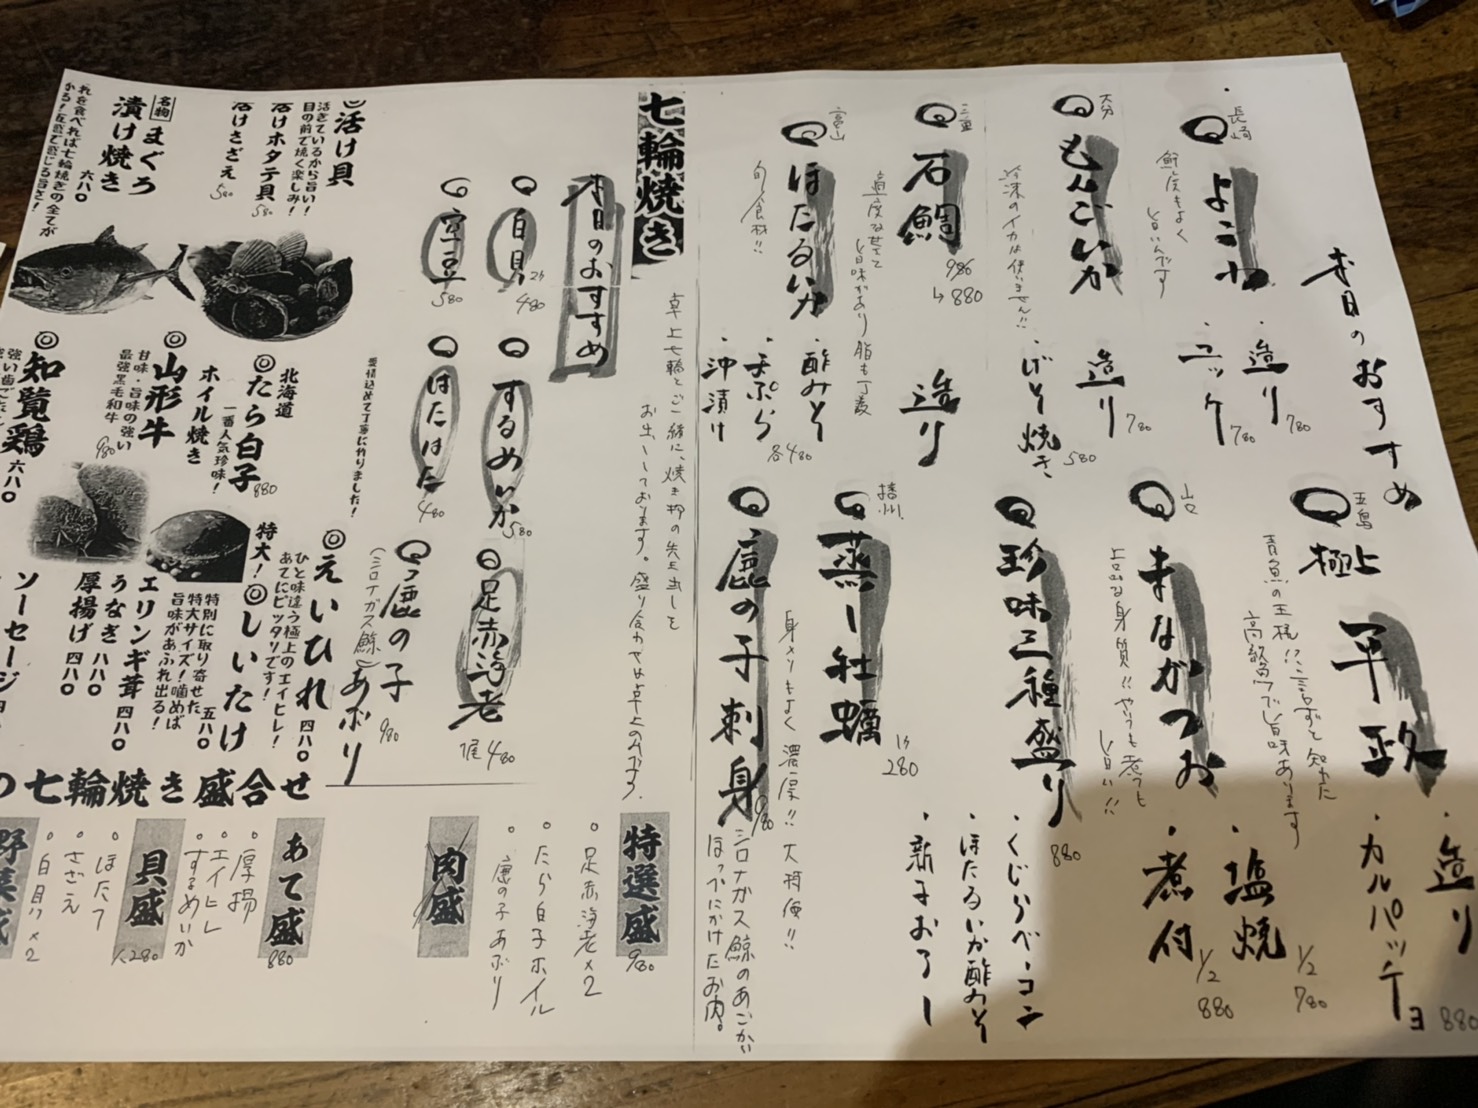 本日のおすすめ
長崎
よこわ
鮮度もよく
旨いんです
・造り 780
・ユッケ 780
大分
もんごいか
冷凍のイカは使いません!!
・造り 780
・げそ焼き 580
三重
石鯛
980
↳880
造り
富山
ほたるいか
旬食材!!
・酢みそ
・天ぷら
・沖漬け
各480
五島
極上
平政
青魚の王様!!言わずと知れた
高級魚で旨味あります
・造り
・カルパッチョ
880
山口
まながつお
上品な身質!!やいても煮ても
旨い!!
・塩焼
1/2
780
・煮付
1/2
880
珍味三種盛り
880
・くじらベーコン
・ほたるいか酢みそ
・新子おろし
播州
蒸し牡蠣
1ケ
280
身入りもよく濃厚!!大将便!!
鹿の子刺身
980
シロナガス鯨のあごから
ほっぺにかけたお肉。
七輪焼き
卓上七輪とご一緒に、焼き物の先出しを
お出ししております。盛り合わせは卓上のみです。
本日のおすすめ
白貝 2ケ
480
空豆
580
するめいか
580
はたはた
480
足赤海老
1尾 480
鹿の子
(シロナガス鯨)あぶり
980
活け貝
活きているから旨い!
目の前で焼く楽しみ!
活けホタテ貝
580
活けさざえ
580
名物
まぐろ
漬け焼き
六八〇
れを食べれば七輪焼きの全てが
かる!五感で感じる旨さ!
愛情込めて丁寧に作りました!
北海道
たら白子
ホイル焼き
一番人気珍味!
880
山形牛
甘味・旨味の強い
最強黒毛和牛
980
知覧鶏
六八〇
えいひれ 四八〇
ひと味違う極上のエイヒレ!
あてにピッタリです!
特大!
しいたけ
五八〇
特別に取り寄せた
特大サイズ!噛めば
旨味があふれ出る!
エリンギ茸 四八〇
うなぎ 八八〇
厚揚げ 四八〇
ソーセージ
の七輪焼き盛合せ
特選盛
980
足赤海老×2
たら白子ホイル
鹿の子あぶり
肉盛
あて盛
880
厚揚
エイヒレ
するめいか
貝盛
1,280
ほたて
さざえ
白貝×2
野菜盛